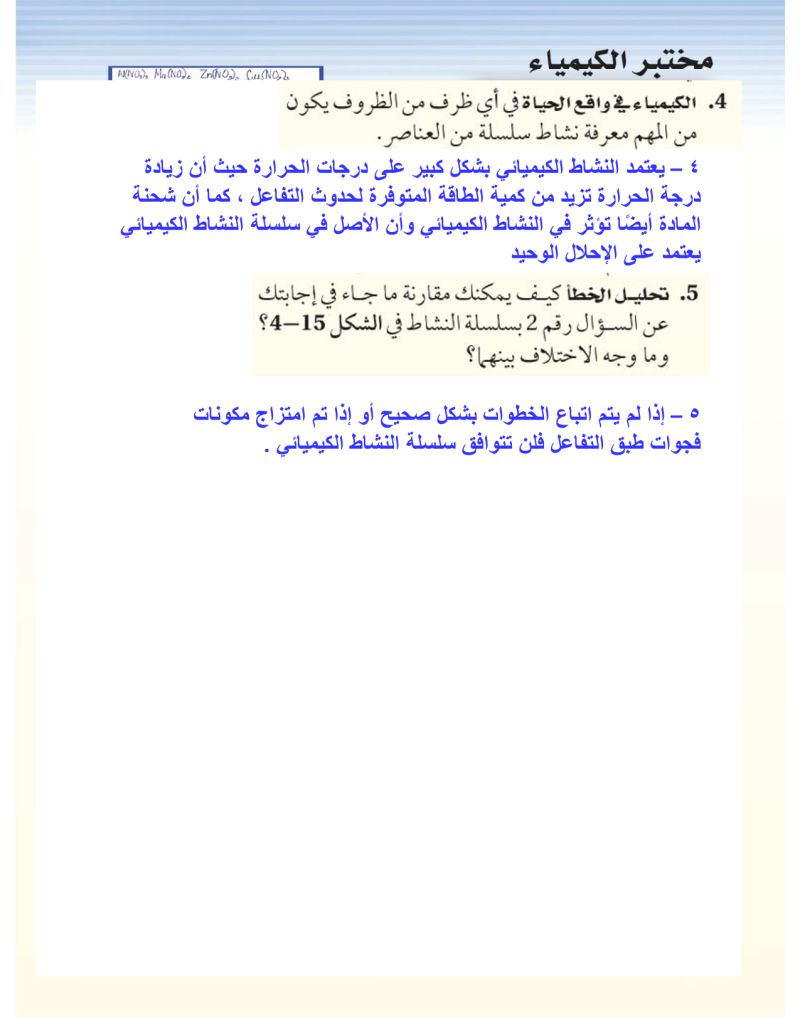 مختبر الكيمياء
Al(NO₃)₃ Mg(NO₃)₂ Zn(NO₃)₂ Cu(NO₃)₂
4. الكيمياء في واقع الحياة في أي ظرف من الظروف يكون
من المهم معرفة نشاط سلسلة من العناصر.
٤ – يعتمد النشاط الكيميائي بشكل كبير على درجات الحرارة حيث أن زيادة
درجة الحرارة تزيد من كمية الطاقة المتوفرة لحدوث التفاعل ، كما أن شحنة
المادة أيضًا تؤثر في النشاط الكيميائي وأن الأصل في سلسلة النشاط الكيميائي
يعتمد على الإحلال الوحيد
5. تحليل الخطأ كيف يمكنك مقارنة ما جاء في إجابتك
عن السؤال رقم 2 بسلسلة النشاط في الشكل 15–4؟
وما وجه الاختلاف بينهما؟
٥ – إذا لم يتم اتباع الخطوات بشكل صحيح أو إذا تم امتزاج مكونات
فجوات طبق التفاعل فلن تتوافق سلسلة النشاط الكيميائي .